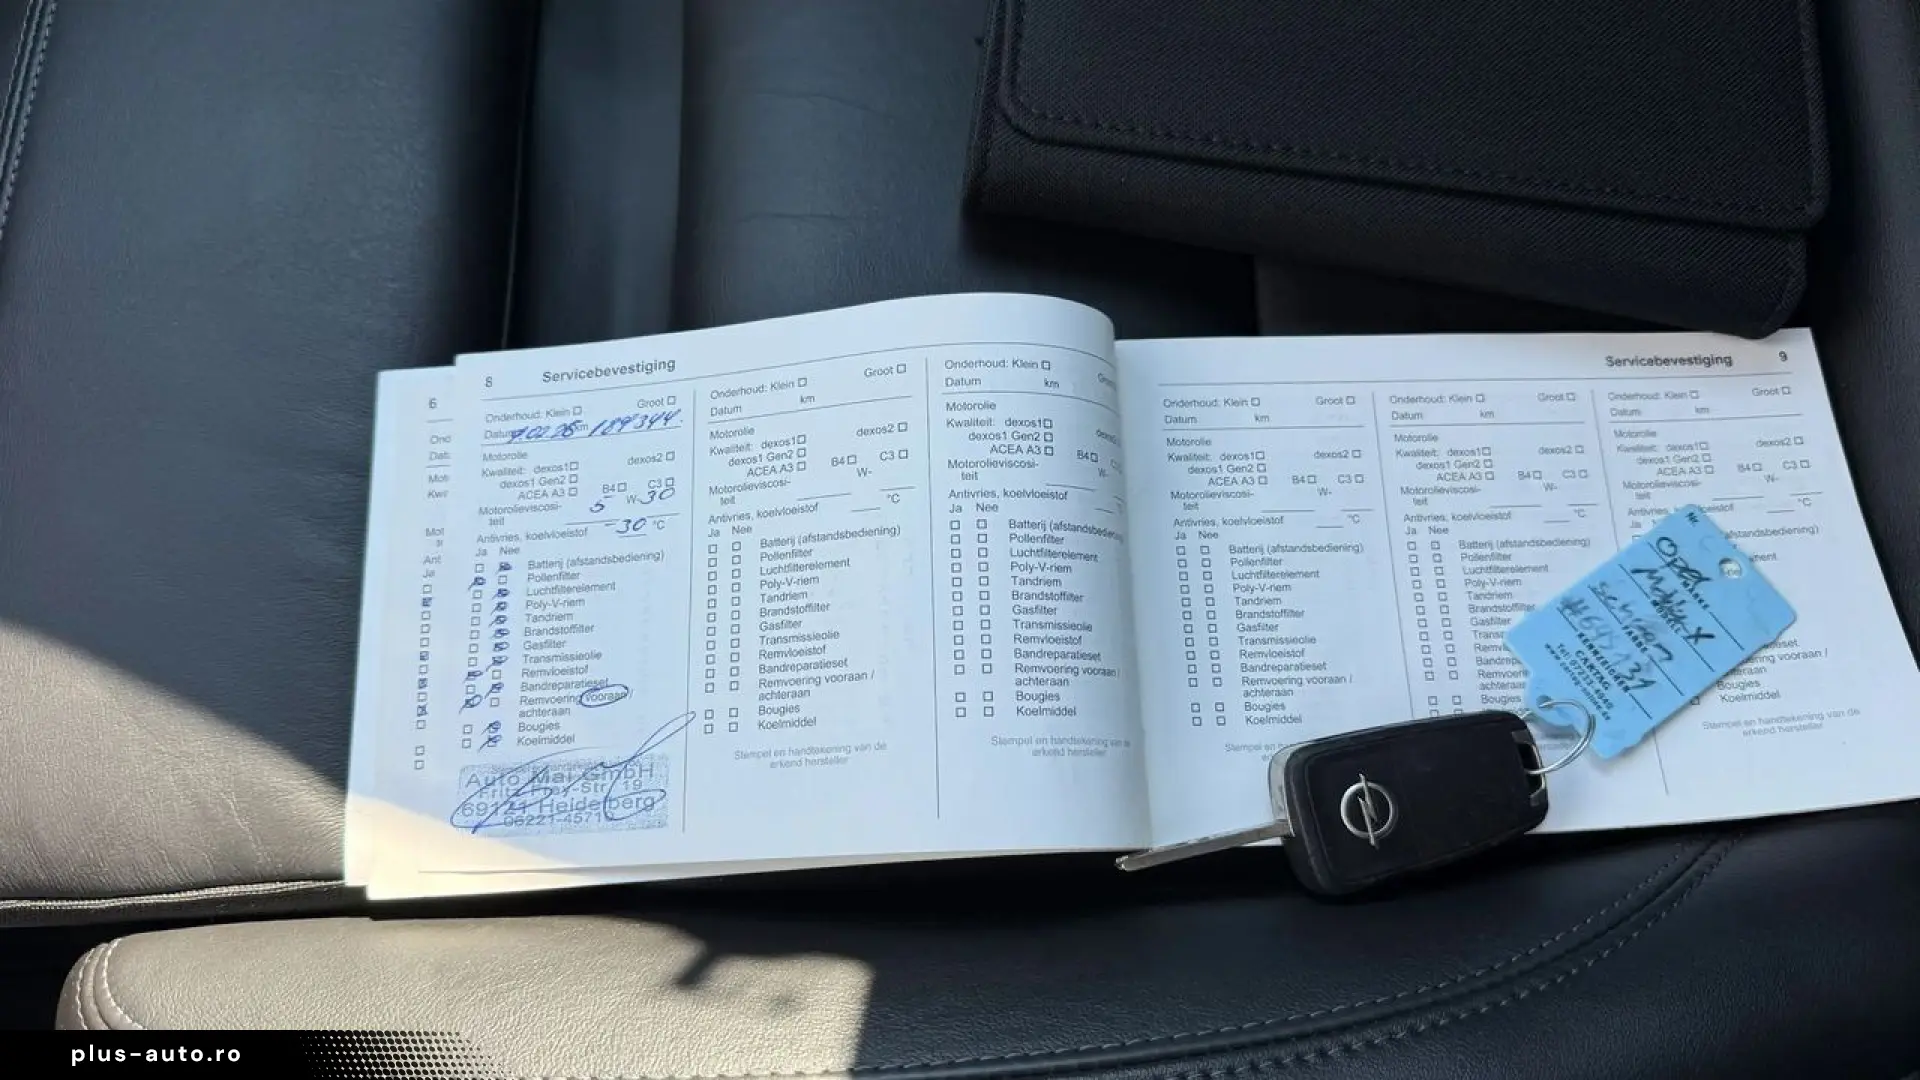 6
8 Servicebevestiging
Onderhoud: Klein Groot
Datum km 189344
Motorolie
Kwaliteit: dexos1 dexos2
dexos1 Gen2
ACEA A3 B4 C3
Motorolieviscosi- 5 W-30
teit
Antivries, koelvloeistof -30 °C
Ja Nee
Batterij (afstandsbediening)
Pollenfilter
Luchtfilterelement
Poly-V-riem
Tandriem
Brandstoffilter
Gasfilter
Transmissieolie
Remvloeistof
Bandreparatieset
Remvoering vooraan /
achteraan
Bougies
Koelmiddel
Auto Mai GmbH
Fritz-Frey-Str. 19
69121 Heidelberg
06221-45710
Onderhoud: Klein Groot
Datum km
Motorolie
Kwaliteit: dexos1 dexos2
dexos1 Gen2
ACEA A3 B4 C3
Motorolieviscosi- W-
teit
Antivries, koelvloeistof °C
Ja Nee
Batterij (afstandsbediening)
Pollenfilter
Luchtfilterelement
Poly-V-riem
Tandriem
Brandstoffilter
Gasfilter
Transmissieolie
Remvloeistof
Bandreparatieset
Remvoering vooraan /
achteraan
Bougies
Koelmiddel
Stempel en handtekening van de
erkend hersteller
Onderhoud: Klein
Datum km
Motorolie
Kwaliteit: dexos1
dexos1 Gen2
ACEA A3 B4
Motorolieviscosi- W-
teit
Antivries, koelvloeistof
Ja Nee
Batterij (afstandsbediening)
Pollenfilter
Luchtfilterelement
Poly-V-riem
Tandriem
Brandstoffilter
Gasfilter
Transmissieolie
Remvloeistof
Bandreparatieset
Remvoering vooraan /
achteraan
Bougies
Koelmiddel
Stempel en handtekening van de
erkend hersteller
Servicebevestiging 9
Onderhoud: Klein Groot
Datum km
Motorolie
Kwaliteit: dexos1 dexos2
dexos1 Gen2
ACEA A3 B4 C3
Motorolieviscosi- W-
teit
Antivries, koelvloeistof °C
Ja Nee
Batterij (afstandsbediening)
Pollenfilter
Luchtfilterelement
Poly-V-riem
Tandriem
Brandstoffilter
Gasfilter
Transmissieolie
Remvloeistof
Bandreparatieset
Remvoering vooraan /
achteraan
Bougies
Koelmiddel
Stempel en
Onderhoud: Klein Groot
Datum km
Motorolie
Kwaliteit: dexos1 dexos2
dexos1 Gen2
ACEA A3 B4 C3
Motorolieviscosi- W-
teit
Antivries, koelvloeistof °C
Ja Nee
Batterij (afstandsbediening)
Pollenfilter
Luchtfilterelement
Poly-V-riem
Tandriem
Brandstoffilter
Gasfilter
Onderhoud: Klein Groot
Datum km
Motorolie
Kwaliteit: dexos1 dexos2
dexos1 Gen2
ACEA A3 B4 C3
Motorolieviscosi- W-
teit
Antivries, °C
Ja
Bougies
Koelmiddel
Stempel en handtekening van de
erkend hersteller
Nr.
Opel
Mokka X
FARBE
KENNZEICHEN
CARTAG
plus-auto.ro